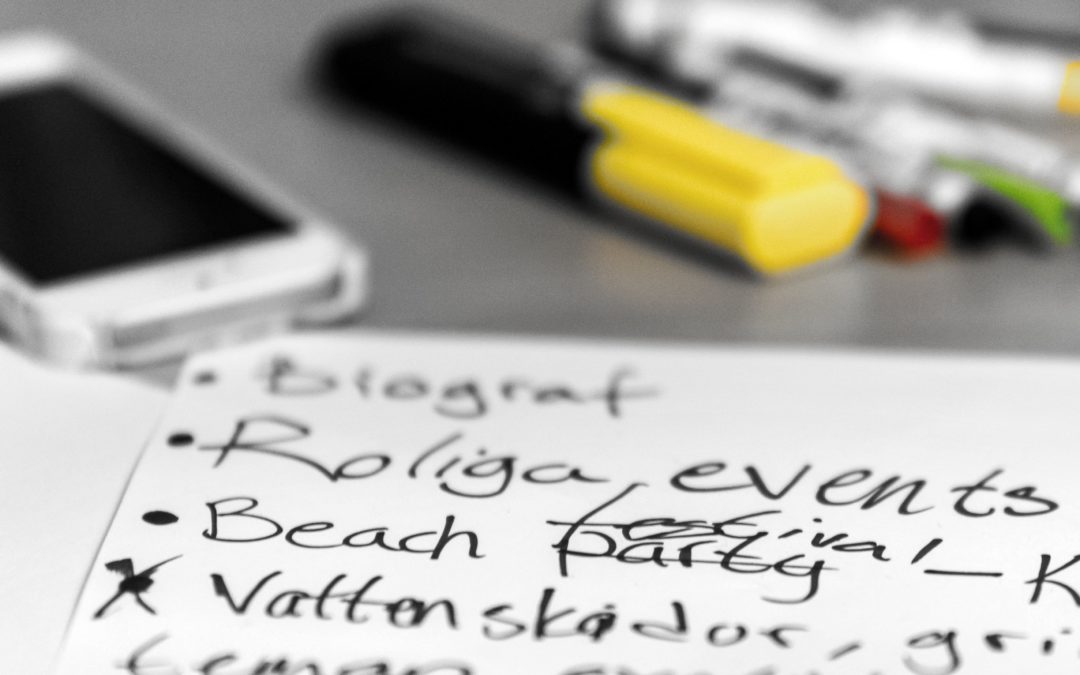 • Biograf
• Roliga events
• Beach party festival – K
x Vattenskidor, gri
teman